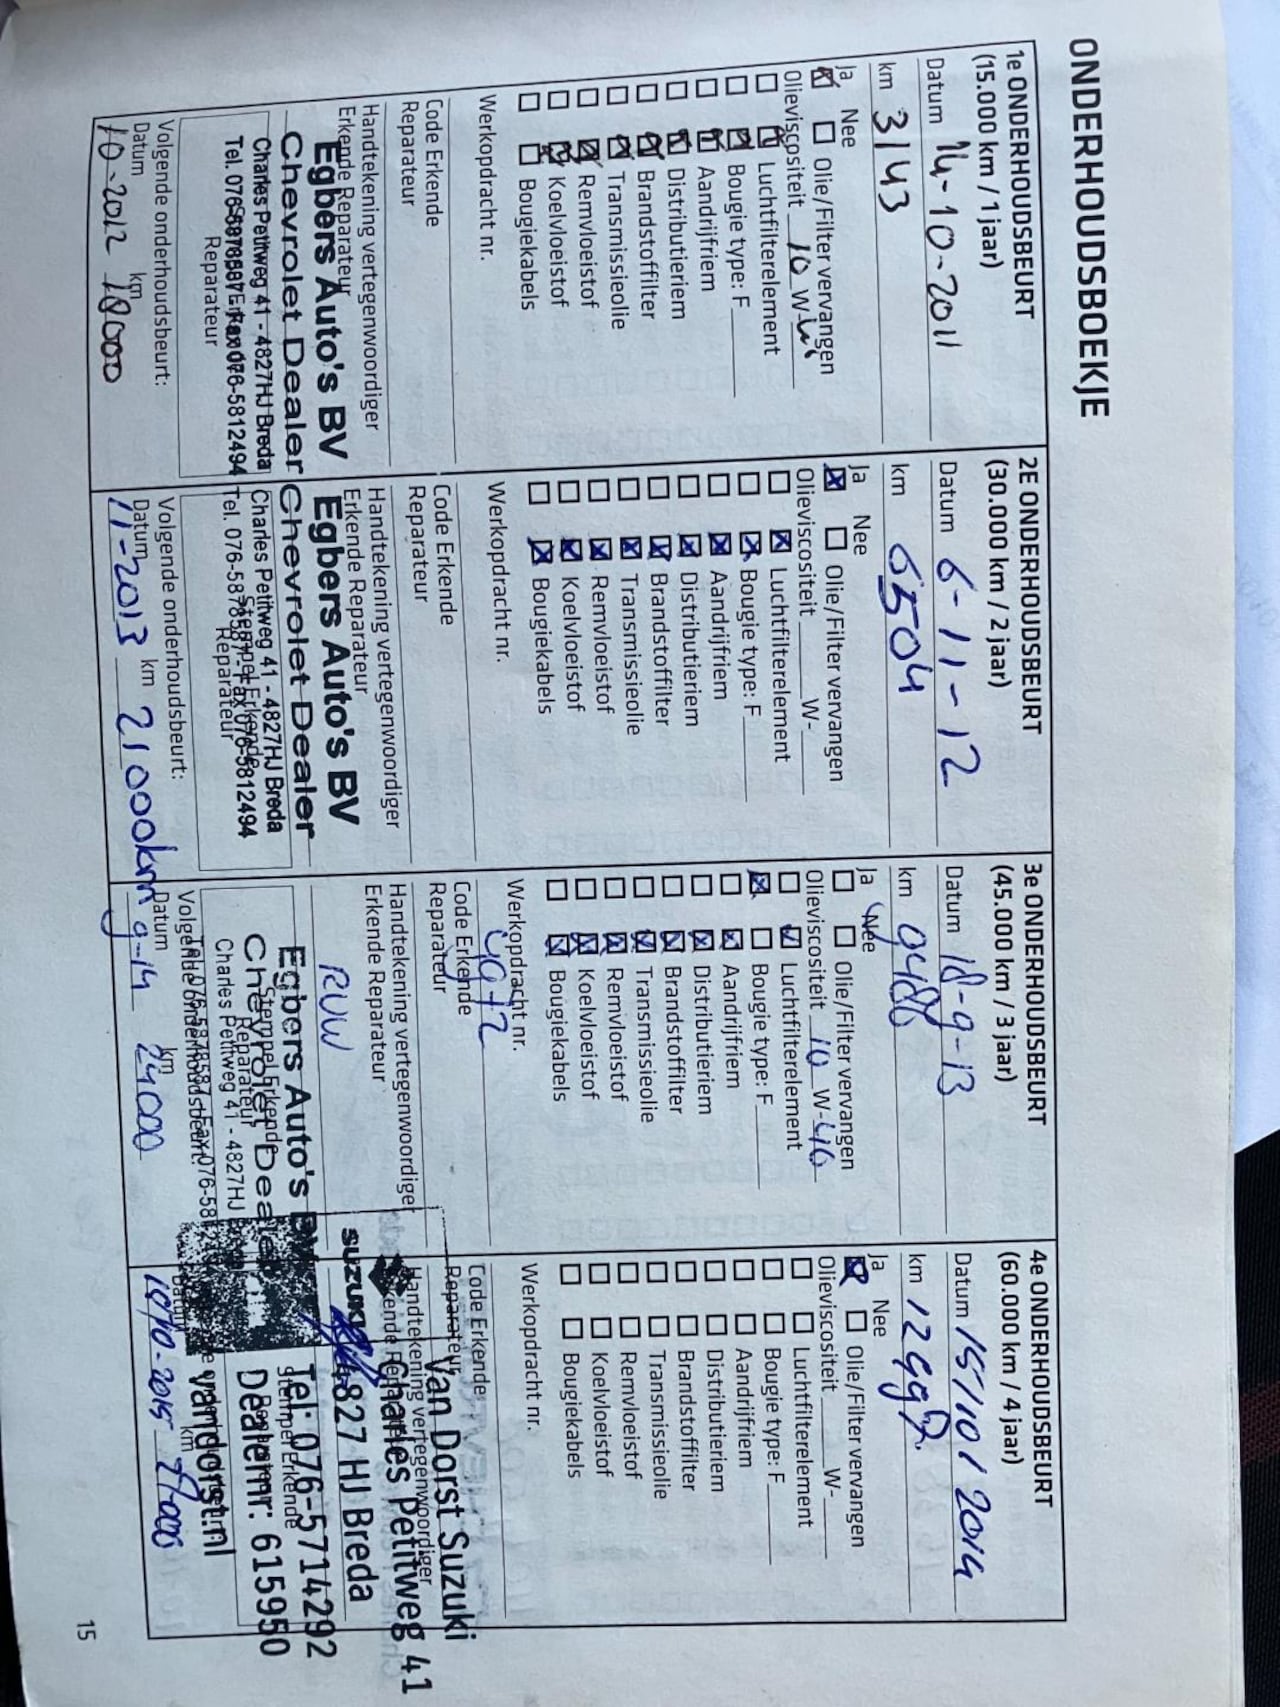 ONDERHOUDSBOEKJE
1e ONDERHOUDSBEURT
(15.000 km / 1 jaar)
Datum 14-10-2011
km 3143
Ja Nee
Olie/Filter vervangen
Olieviscositeit 10 W-
Luchtfilterelement
Bougie type: F
Aandrijfriem
Distributieriem
Brandstoffilter
Transmissieolie
Remvloeistof
Koelvloeistof
Bougiekabels
Werkopdracht nr.
Code Erkende
Reparateur
Handtekening vertegenwoordiger
Erkende Reparateur
Egbers Auto's BV
Chevrolet Dealer
Charles Petitweg 41 - 4827HJ Breda
Tel. 076-5878587 - Fax 076-5812494
Reparateur
Volgende onderhoudsbeurt:
Datum km
10-2012 18000
2E ONDERHOUDSBEURT
(30.000 km / 2 jaar)
Datum 6-11-12
km 6504
Ja Nee
Olie/Filter vervangen
Olieviscositeit W-
Luchtfilterelement
Bougie type: F
Aandrijfriem
Distributieriem
Brandstoffilter
Transmissieolie
Remvloeistof
Koelvloeistof
Bougiekabels
Werkopdracht nr.
Code Erkende
Reparateur
Handtekening vertegenwoordiger
Erkende Reparateur
Egbers Auto's BV
Chevrolet Dealer
Charles Petitweg 41 - 4827HJ Breda
Stempel Erkende
Tel. 076-5878587 - Fax 076-5812494
Reparateur
Volgende onderhoudsbeurt:
Datum km
11-2013 21000km
3e ONDERHOUDSBEURT
(45.000 km / 3 jaar)
Datum 18-9-13
km 9486
Ja Nee
Olie/Filter vervangen
Olieviscositeit 10 W-40
Luchtfilterelement
Bougie type: F
Aandrijfriem
Distributieriem
Brandstoffilter
Transmissieolie
Remvloeistof
Koelvloeistof
Bougiekabels
Werkopdracht nr.
Code Erkende
Reparateur
Handtekening vertegenwoordiger
Erkende Reparateur
Egbers Auto's BV
Stempel Erkende
Chevrolet Dealer
Reparateur
Charles Petitweg 41 - 4827HJ
Volgende onderhoudsbeurt:
Datum km
9-14 24000
4e ONDERHOUDSBEURT
(60.000 km / 4 jaar)
Datum 15/10/2014
km 12997
Ja Nee
Olie/Filter vervangen
Olieviscositeit W-
Luchtfilterelement
Bougie type: F
Aandrijfriem
Distributieriem
Brandstoffilter
Transmissieolie
Remvloeistof
Koelvloeistof
Bougiekabels
Werkopdracht nr.
Code Erkende
Reparateur
Handtekening vertegenwoordiger
Van Dorst Suzuki
Charles Petitweg 41
SUZUKI
4827 HJ Breda
Tel: 076-5714292
Stempel Erkende
Dealernr: 615950
vandorst.nl
Datum km
10-2015 27000
15